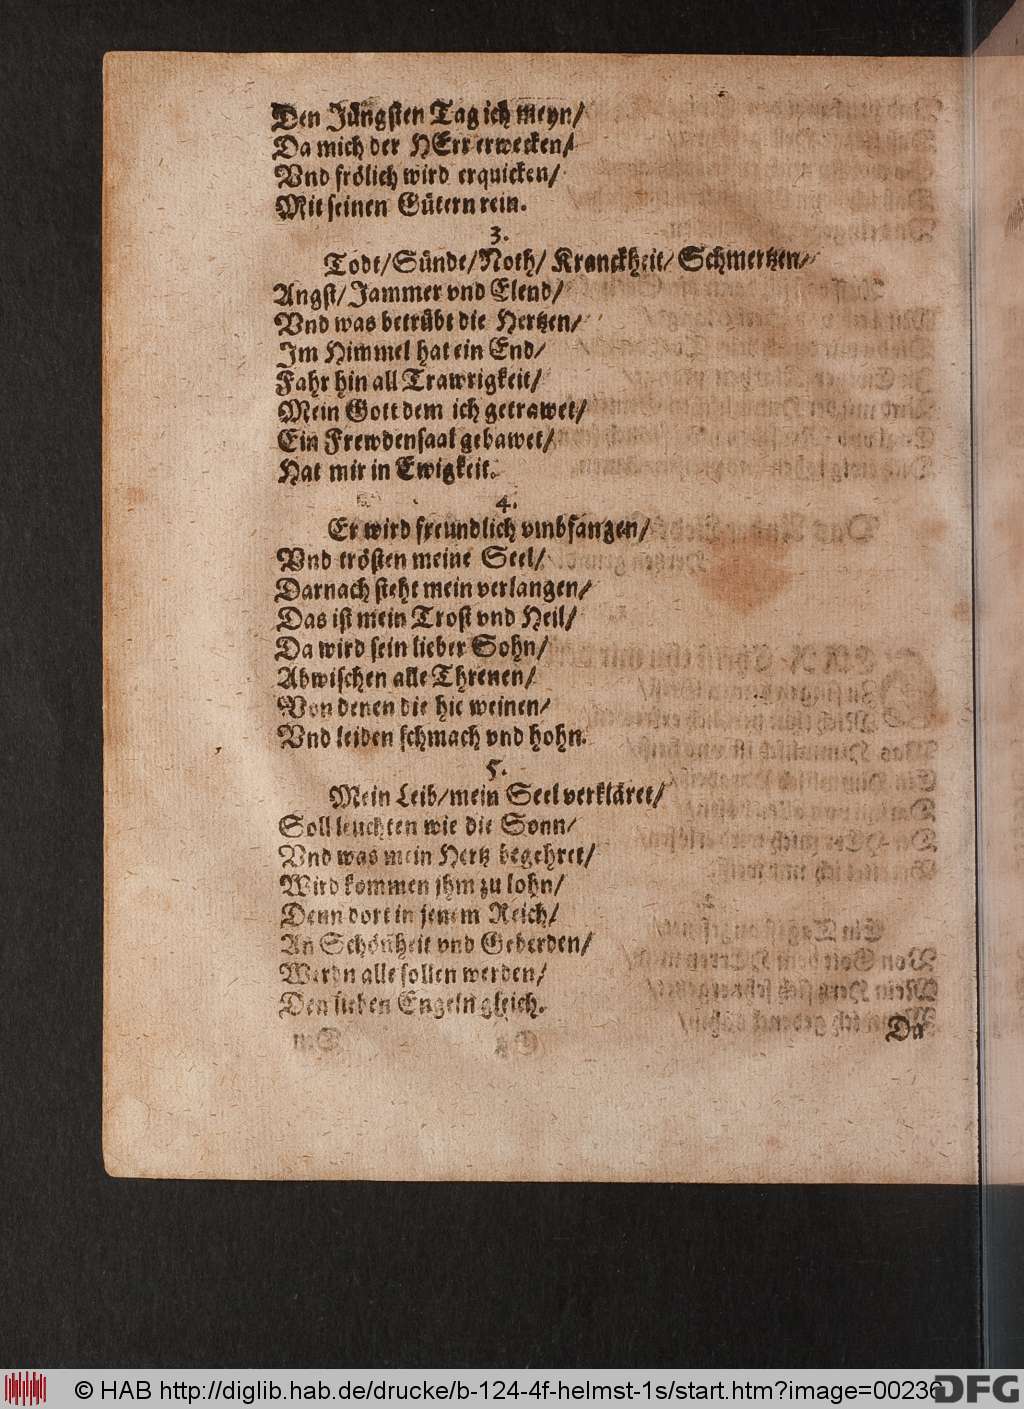 Den Jüngsten Tag ich meyn/
Da mich der HErr erwecken/
Vnd frölich wird erquicken/
Mit seinen Gütern rein.
3.
Todt/Sünde/Noth/ Kranckheit/ Schmertzen/
Angst/ Jammer vnd Elend/
Vnd was betrübt die Hertzen/
Im Himmel hat ein End/
Fahr hin all Trawrigkeit/
Mein Gott dem ich getrawet/
Ein Frewdensaal gebawet/
Hat mir in Ewigkeit.
4.
Er wird freundlich vmbfangen/
Vnd trösten meine Seel/
Darnach steht mein verlangen/
Das ist mein Trost vnd Heil/
Da wird sein lieber Sohn/
Abwischen alle Threnen/
Von denen die hie weinen/
Vnd leiden schmach vnd hohn.
5.
Mein Leib/mein Seel verkläret/
Soll leuchten wie die Sonn/
Vnd was mein Hertz begehret/
Wird kommen jhm zu lohn/
Denn dort in jenem Reich/
An Schönheit vnd Geberden/
Werdn alle sollen werden/
Den lieben Engeln gleich.
Da
© HAB http://diglib.hab.de/drucke/b-124-4f-helmst-1s/start.htm?image=00236
DFG